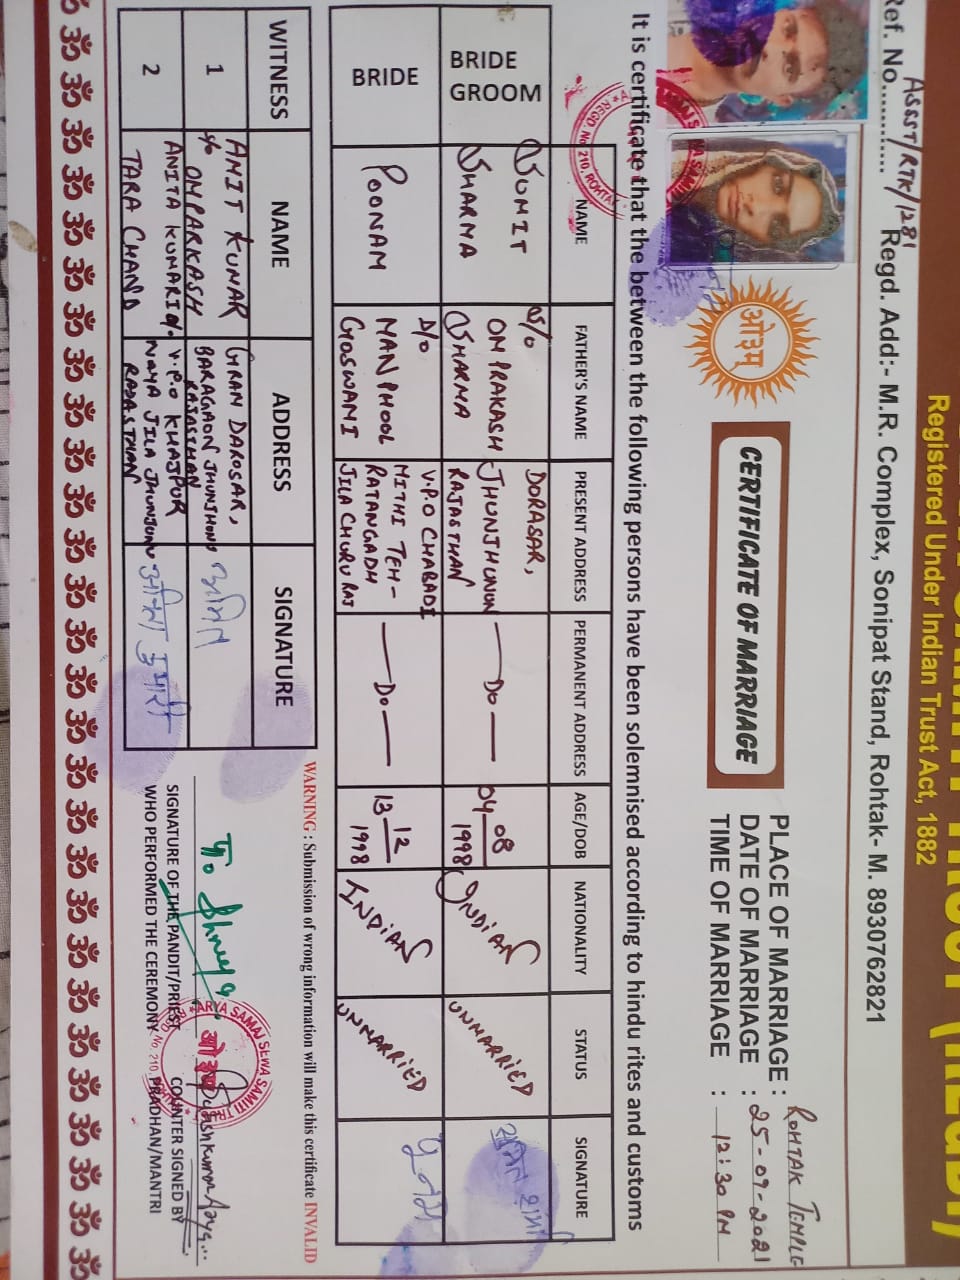 Registered Under Indian Trust Act, 1882
Ref. No. ASSST/RTK/1281 Regd. Add:- M.R. Complex, Sonipat Stand, Rohtak- M. 8930762821
ओ३म्
CERTIFICATE OF MARRIAGE
PLACE OF MARRIAGE : ROHTAK TEMPLE
DATE OF MARRIAGE : 25-09-2021
TIME OF MARRIAGE : 12:30 PM
It is certificate that the between the following persons have been solemnised according to hindu rites and customs
NAME FATHER'S NAME PRESENT ADDRESS PERMANENT ADDRESS AGE/DOB NATIONALITY STATUS SIGNATURE
BRIDE GROOM
SUMIT
SHARMA
S/o
OM PRAKASH
SHARMA
DORASAR,
JHUNJHUNUN
RAJASTHAN
Do
04
08
1998
INDIAN
UNMARRIED
सुमित शर्मा
BRIDE
POONAM
D/o
MANPHOOL
GOSWAMI
V.P.O CHABADI
MITHI TEH-
RATANGADH
JILA CHURU RAJ
Do
13
12
1998
INDIAN
UNMARRIED
पूनम
WARNING : Submission of wrong information will make this certificate INVALID
WITNESS NAME ADDRESS SIGNATURE
1
AMIT KUMAR
S/o OMPARKASH
GRAM DAROSAR,
BARAGAON JHUNJHUNU
RAJASTHAN
अमित
2
ANITA KUMARI d/o
TARA CHAND
V.P.O KHAJPUR
NAYA JILA JHUNJUNU
RAJASTHAN
अनिता कुमारी
SIGNATURE OF THE PANDIT/PRIEST
WHO PERFORMED THE CEREMONY
COUNTER SIGNED BY
PRADHAN/MANTRI
ARYA SAMAJ SEWA SAMITI TRUST
REGD No. 210
ओ३म्
REGD No. 210, ROHTAK
ॐ ॐ ॐ ॐ ॐ ॐ ॐ ॐ ॐ ॐ ॐ ॐ ॐ ॐ ॐ ॐ ॐ ॐ ॐ ॐ ॐ ॐ ॐ ॐ